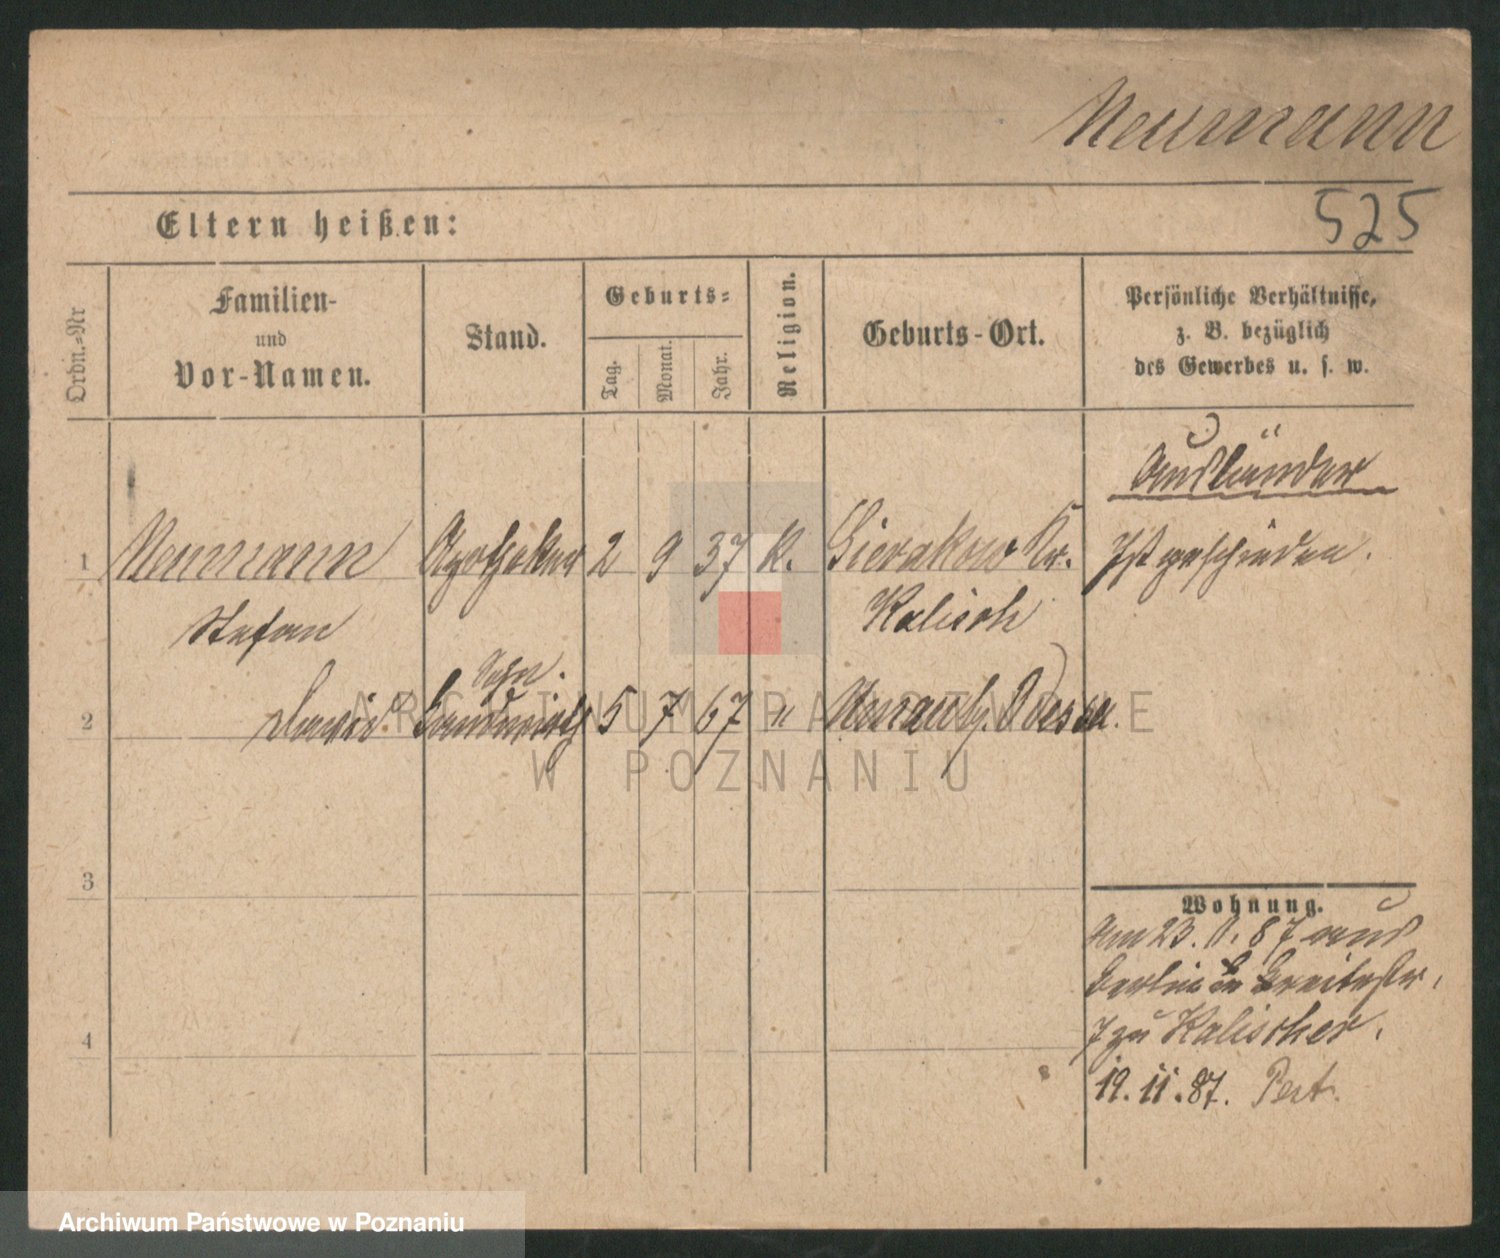 Neumann
525
Eltern heißen:
Ordn.-Nr
Familien-
und
Vor-Namen.
Stand.
Geburts-
Tag.
Monat.
Jahr.
Religion.
Geburts-Ort.
Persönliche Verhältnisse,
z. B. bezüglich
des Gewerbes u. s. w.
Ausländer
1 Neumann Apotheker 2 9 37 K. Sierakow Kr. Ist geschieden.
Stefan Kalisch
Sohn.
2 David Landwirth 5 7 67 " Odessa.
3
4
Wohnung.
Am 23. 87 aus
Berlin Breitestr.
7 zu Kalischer.
19.11.87.
ARCHIWUM PAŃSTWOWE
W POZNANIU
Archiwum Państwowe w Poznaniu